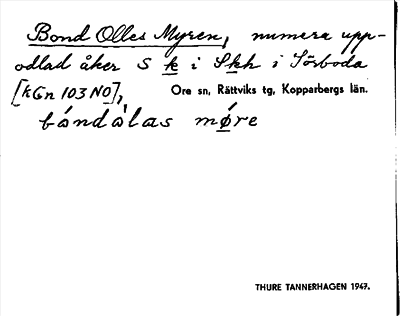 Bond Olles Myren, numera upp-
odlad åker S k i Skh i Sörboda
[kGn 103 NO], Ore sn, Rättviks tg, Kopparbergs län.
bóndàlas møre
THURE TANNERHAGEN 1947.